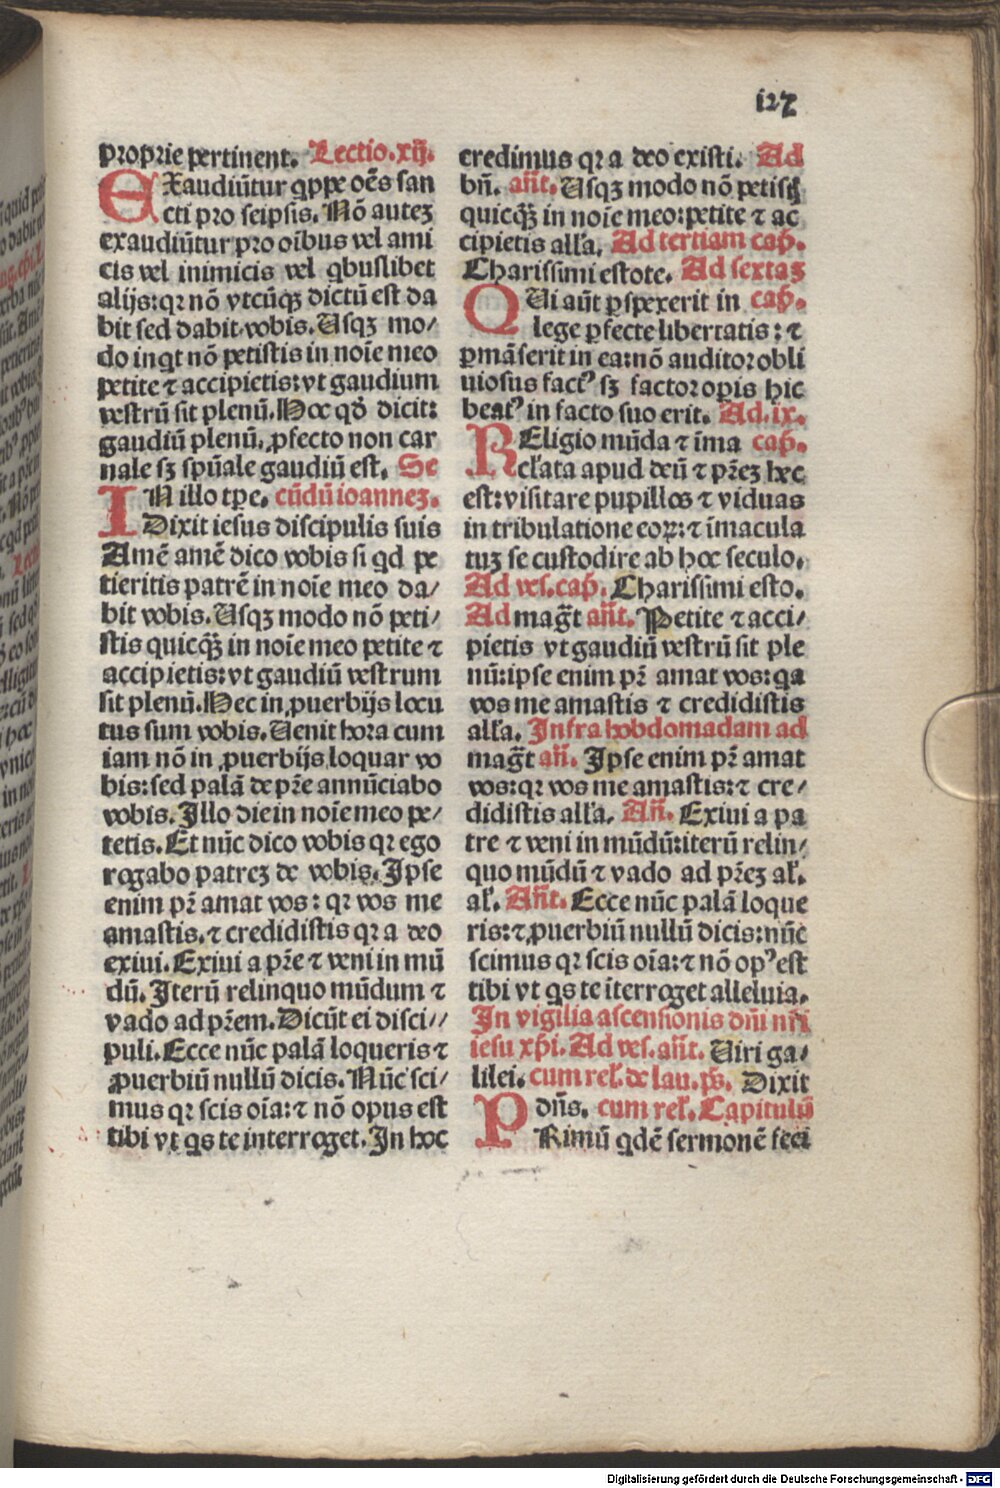 127
proprie pertinent. Lectio.xij.
EXaudiūtur qppe oēs san
cti pro seipsis. Nō autez
exaudiūtur pro oībus vel ami
cis vel inimicis vel qbuslibet
alijs: qꝛ nō vtcūqꝫ dictū est da
bit sed dabit vobis. Usqꝫ mo/
do inqt nō petistis in noīe meo
petite ⁊ accipietis: vt gaudium
vestrū sit plenū. Hoc qd̄ dicit:
gaudiū plenū. ꝓfecto non car
nale sꝫ spūale gaudiū est. Se
IN illo tpe. cūdū ioannez.
Dixit iesus discipulis suis
Amē amē dico vobis si qd pe
tieritis patrē in noīe meo da/
bit vobis. Usqꝫ modo nō peti/
stis quicqꝫ̄ in noīe meo petite ⁊
accipietis: vt gaudiū vestrum
sit plenū. Hec in ꝓuerbijs locu
tus sum vobis. Uenit hora cum
iam nō in ꝓuerbijs loquar vo
bis: sed palā de pr̄e annūciabo
vobis. Illo die in noīe meo pe/
tetis. Et nūc dico vobis qꝛ ego
rogabo patrez de vobis. Ipse
enim pr̄ amat vos: qꝛ vos me
amastis. ⁊ credidistis qꝛ a deo
exiui. Exiui a pr̄e ⁊ veni in mū
dū. Iterū relinquo mūdum ⁊
vado ad pr̄em. Dicūt ei disci//
puli. Ecce nūc palā loqueris ⁊
ꝓuerbiū nullū dicis. Nūc sci/
mus qꝛ scis oīa: ⁊ nō opus est
tibi vt qs te interroget. In hoc
credimus qꝛ a deo existi. Ad
bn̄. an̄t. Usqꝫ modo nō petistꝭ
quicqꝫ̄ in noīe meo: petite ⁊ ac
cipietis alla. Ad tertiam cap̄.
Charissimi estote. Ad sextaz
QUi aūt ꝑspexerit in cap̄.
lege ꝑfecte libertatis: ⁊
ꝑmāserit in ea: nō auditor obli
uiosus factꝰ sꝫ factor opis hic
beatꝰ in facto suo erit. Ad.ix.
REligio mūda ⁊ īma cap̄.
culata apud deū ⁊ pr̄ez hec
est: visitare pupillos ⁊ viduas
in tribulatione eoꝝ: ⁊ īmacula
tuꝫ se custodire ab hoc seculo.
Ad ves. cap̄. Charissimi esto.
Ad mag̅t an̄t. Petite ⁊ acci/
pietis vt gaudiū vestrū sit ple
nū: ipse enim pr̄ amat vos: qa
vos me amastis ⁊ credidistis
alla. Infra hobdomadam ad
mag̅t an̄. Ipse enim pr̄ amat
vos: qꝛ vos me amastis: ⁊ cre/
didistis alla. An̄. Exiui a pa
tre ⁊ veni in mūdū: iterū relin/
quo mūdū ⁊ vado ad pr̄ez al.
al. An̄t. Ecce nūc palā loque
ris: ⁊ ꝓuerbiū nullū dicis: nūc
scimus qꝛ scis oīa: ⁊ nō opꝰ est
tibi vt qs te īterroget alleluia.
In vigilia ascensionis dn̄i nr̄i
iesu xp̄i. Ad ves. an̄t. Uiri ga/
lilei. cum rel. de lau. ps̄. Dixit
dn̄s. cum rel. Capitulū
PRimū qdē sermonē feci
Digitalisierung gefördert durch die Deutsche Forschungsgemeinschaft - DFG